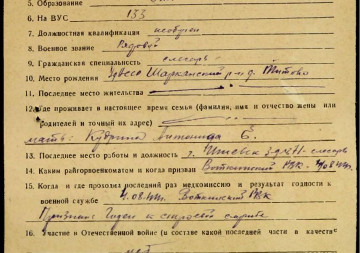 5. Образование
6. На ВУС 133
7. Должностная квалификация необучен
8. Военное звание Рядовой
9. Гражданская специальность слесарь
10. Место рождения Шарканский р-н д. Титово
11. Последнее место жительства
12. Где проживает в настоящее время семья (фамилия, имя и отчество жены или
родителей и точный их адрес)
мать: Кудрина Б.
13. Последнее место работы и должность г. Ижевск слесарь
14. Каким райгорвоенкоматом и когда призван Воткинский РВК 4/08.44г.
15. Когда и где проходил последний раз медкомиссию и результат годности к
военной службе 4.08.44г. Воткинский РВК
Признан: Годен к строевой службе
16. Участие в Отечественной войне (в составе какой последней части в качестве
нет